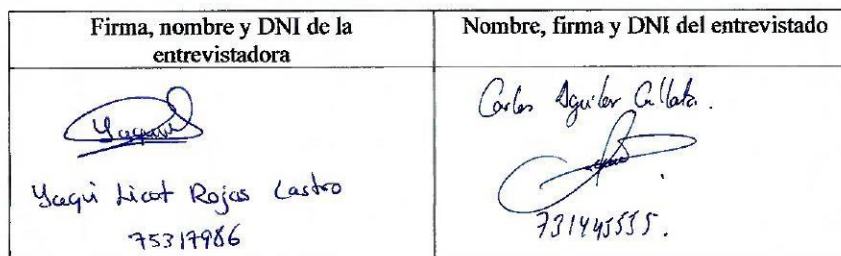 Firma, nombre y DNI de la
entrevistadora
Nombre, firma y DNI del entrevistado
Yaqui
Yaqui Licet Rojas Castro
75317986
Carlos Aguilar